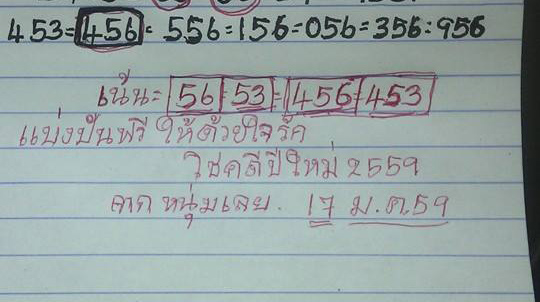 453=456=556=156=056=356=956
เน้น=56=53=456=453
แบ่งปันฟรี ให้ด้วยใจรัก
โชคดีปีใหม่ 2559
จาก หนุ่มเลย. 17 ม.ค.59